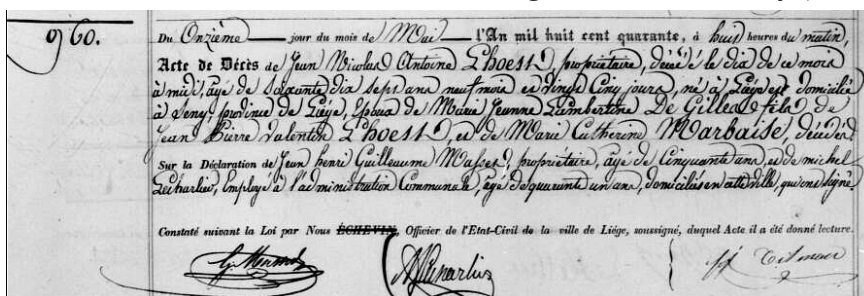 960.
Du Onzième jour du mois de Mai l'An mil huit cent quarante, à huit heures du matin,
Acte de Décès de Jean Nicolas Antoine Lhoest, propriétaire, décédé le dix de ce mois
à midi, agé de Soixante dix sept ans neuf mois et vingt Cinq jours, né à Liége et domicilié
à Seny, province de Liége, Epoux de Marie Jeanne Lambertine De Gilles, fils de
Jean Pierre Valentin Lhoest, et de Marie Catherine Marbaise, décédés.
Sur la Déclaration de Jean henri Guillaume Masset, propriétaire, agé de Cinquante ans, et de michel
Lecharlier, Employé à l'administration Communale, agé de quarante un ans, domiciliés en cette ville, qui ont signé
Constaté suivant la Loi par Nous ECHEVIN, Officier de l'Etat-Civil de la ville de Liége, soussigné, duquel Acte il a été donné lecture.